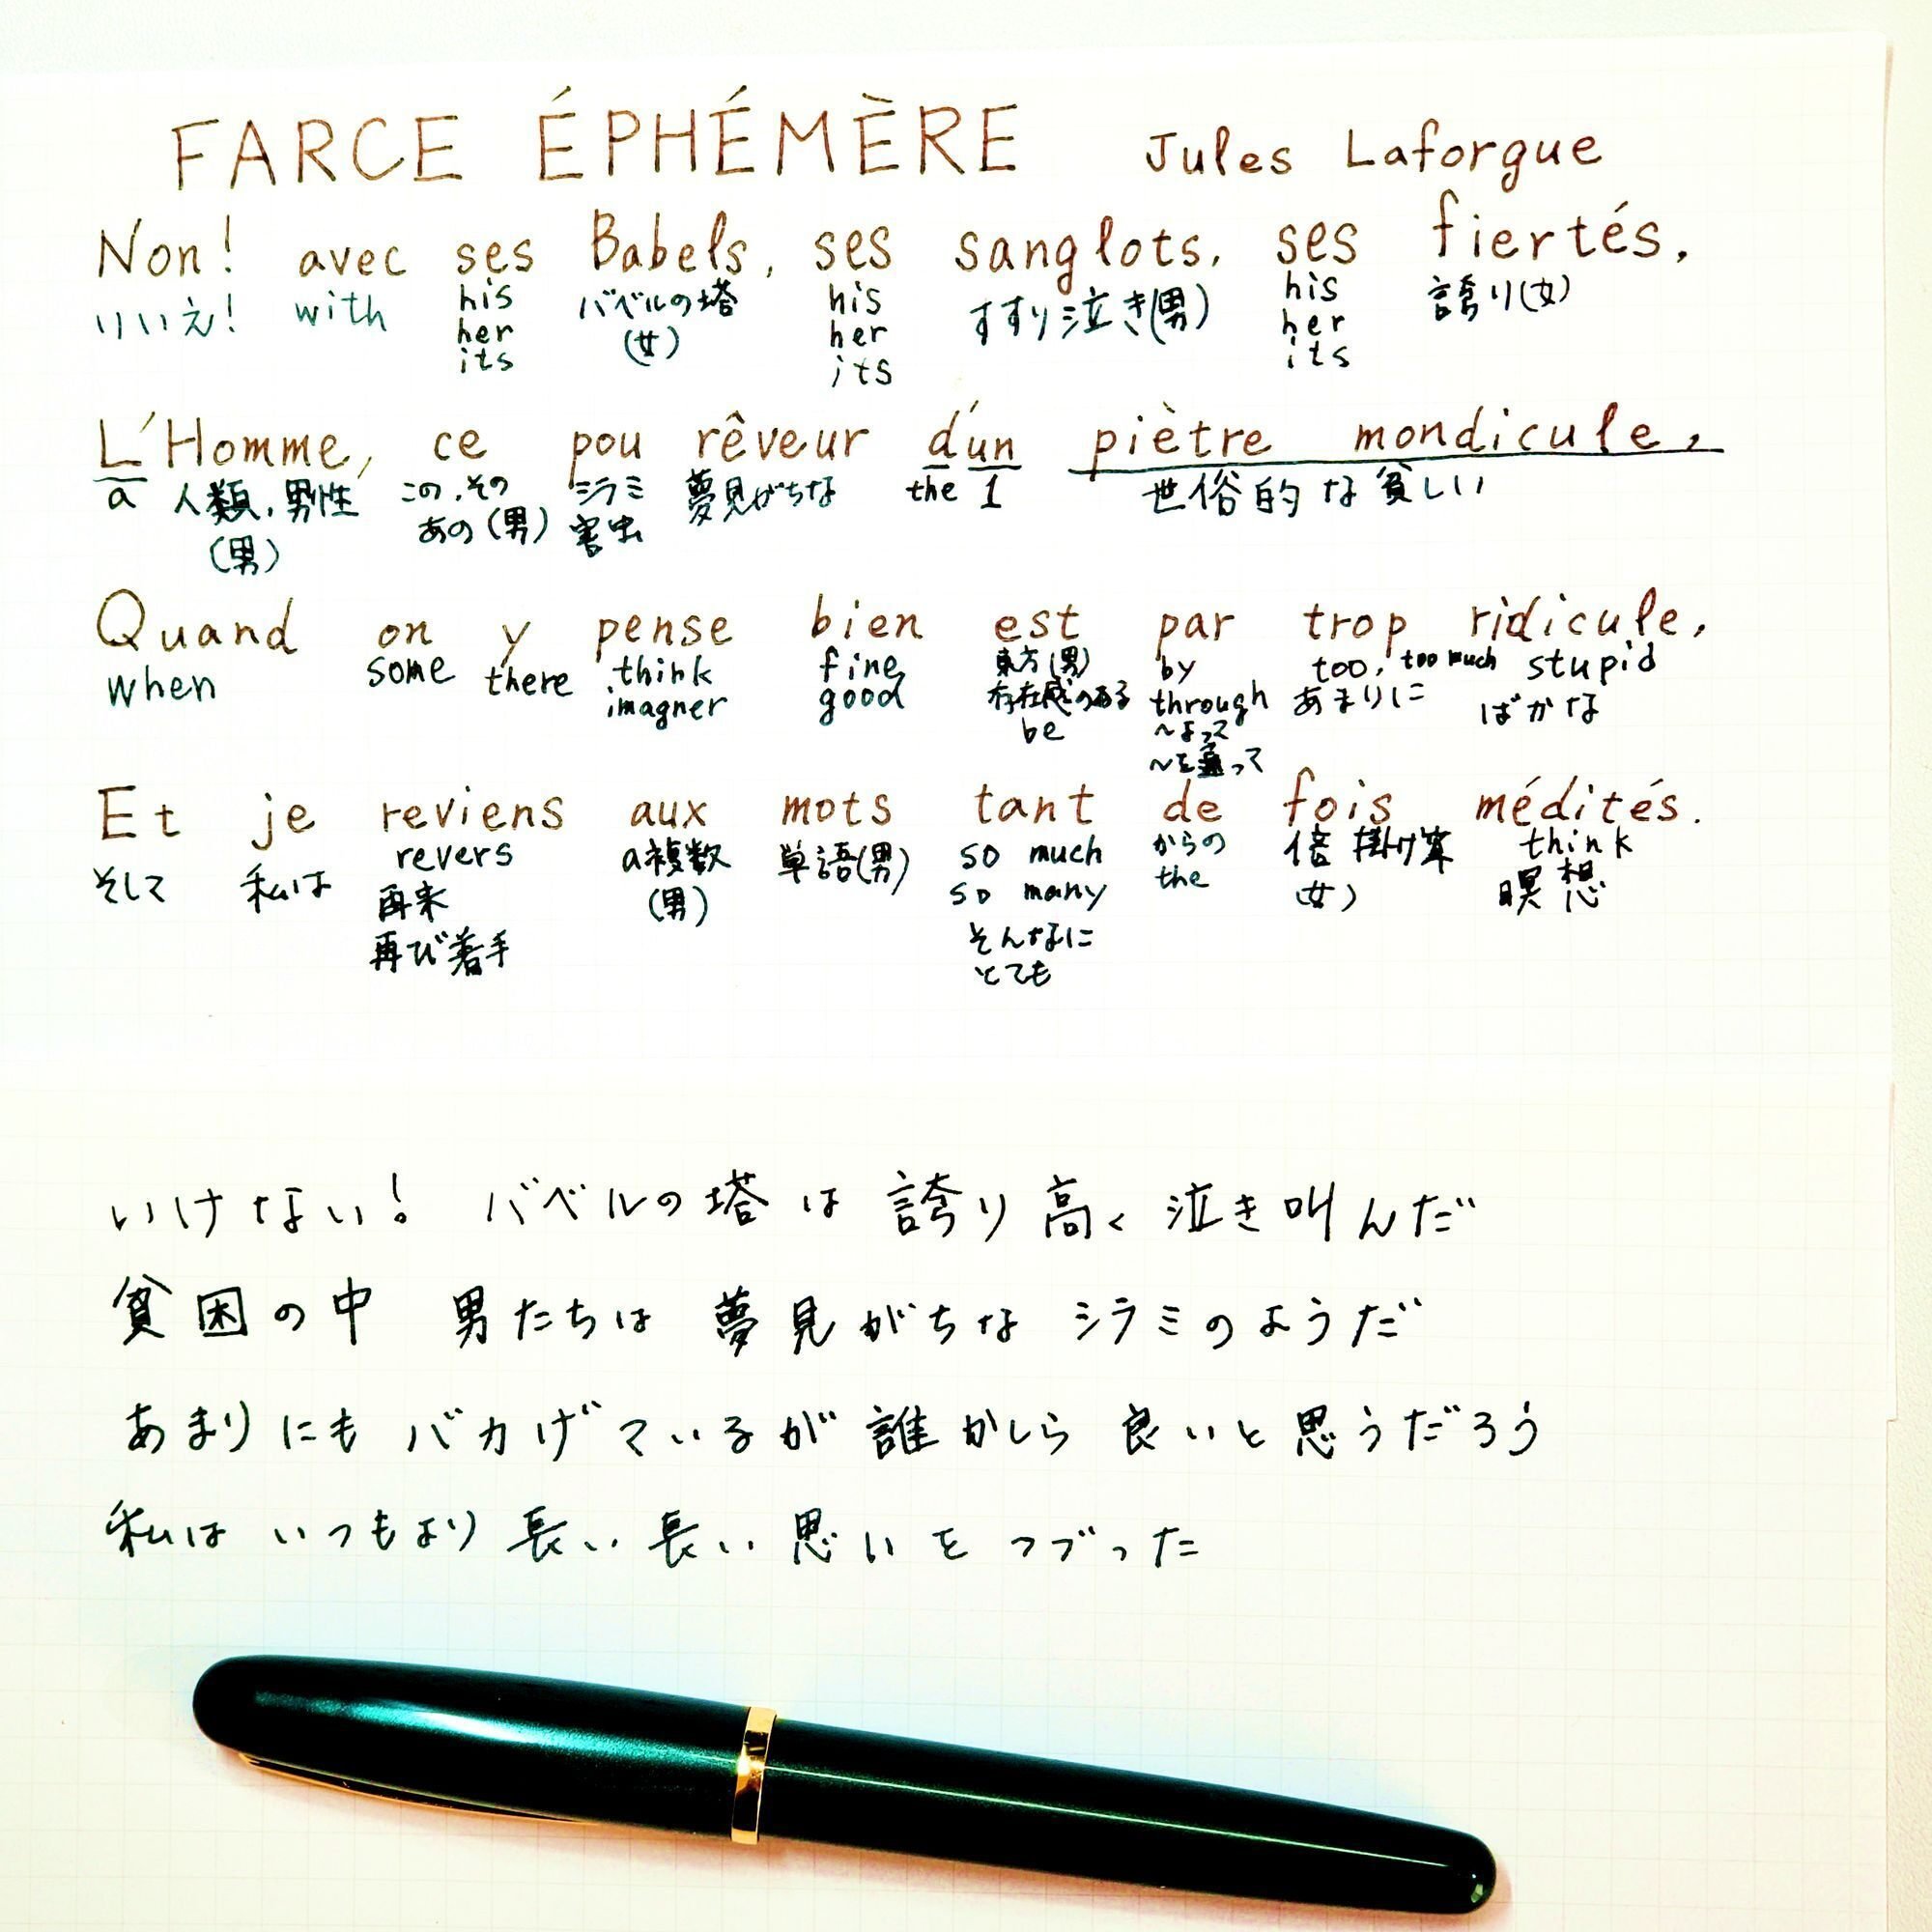 FARCE ÉPHÉMÈRE Jules Laforgue
Non! avec ses Babels, ses sanglots, ses fiertés,
いいえ! with his バベルの塔 his すすり泣き(男) his 誇り(女)
her (女) her her
its its its
L'Homme, ce pou rêveur d'un piètre mondicule,
a 人類,男性 この,その シラミ 夢見がちな the 1 世俗的な貧しい
(男) あの(男) 害虫
Quand on y pense bien est par trop ridicule,
when some there think fine 東方(男) by too, too much stupid
imagner good 存在感のある through あまりに ばかな
be 〜よって
〜を通って
Et je reviens aux mots tant de fois médités.
そして 私は revers a複数 単語(男) so much からの 倍 掛け算 think
再来 (男) so many the (女) 瞑想
再び着手 そんなに
とても
いけない! バベルの塔は誇り高く泣き叫んだ
貧困の中 男たちは 夢見がちな シラミのようだ
あまりにも バカげているが 誰かしら 良いと思うだろう
私は いつもより 長い長い思いを つづった